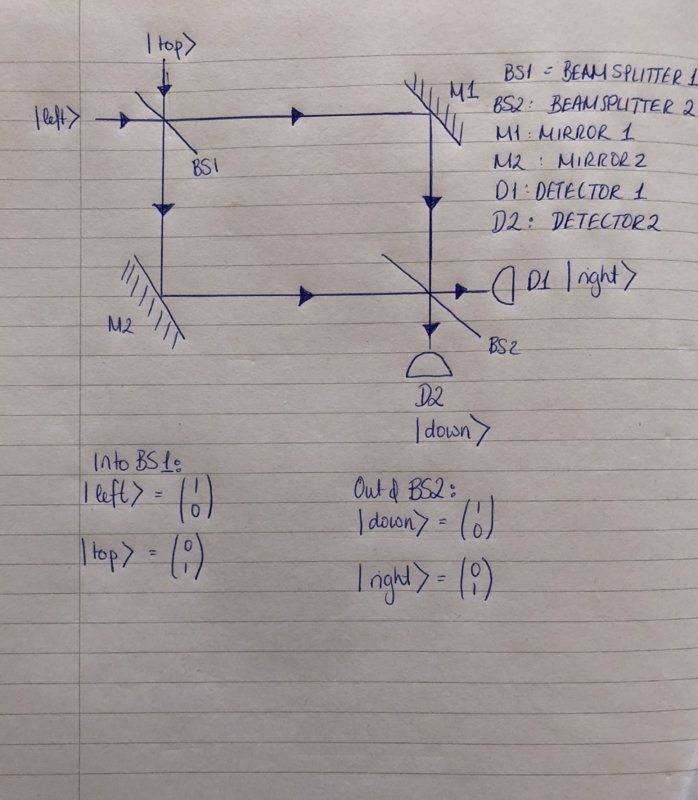 |top⟩
|left⟩
BS1
M1
BS1 = BEAMSPLITTER 1
BS2: BEAMSPLITTER 2
M1: MIRROR 1
M2: MIRROR 2
D1: DETECTOR 1
D2: DETECTOR 2
M2
D1 |right⟩
BS2
D2
|down⟩
Into BS1:
|left⟩ = (1
0)
|top⟩ = (0
1)
Out of BS2:
|down⟩ = (1
0)
|right⟩ = (0
1)